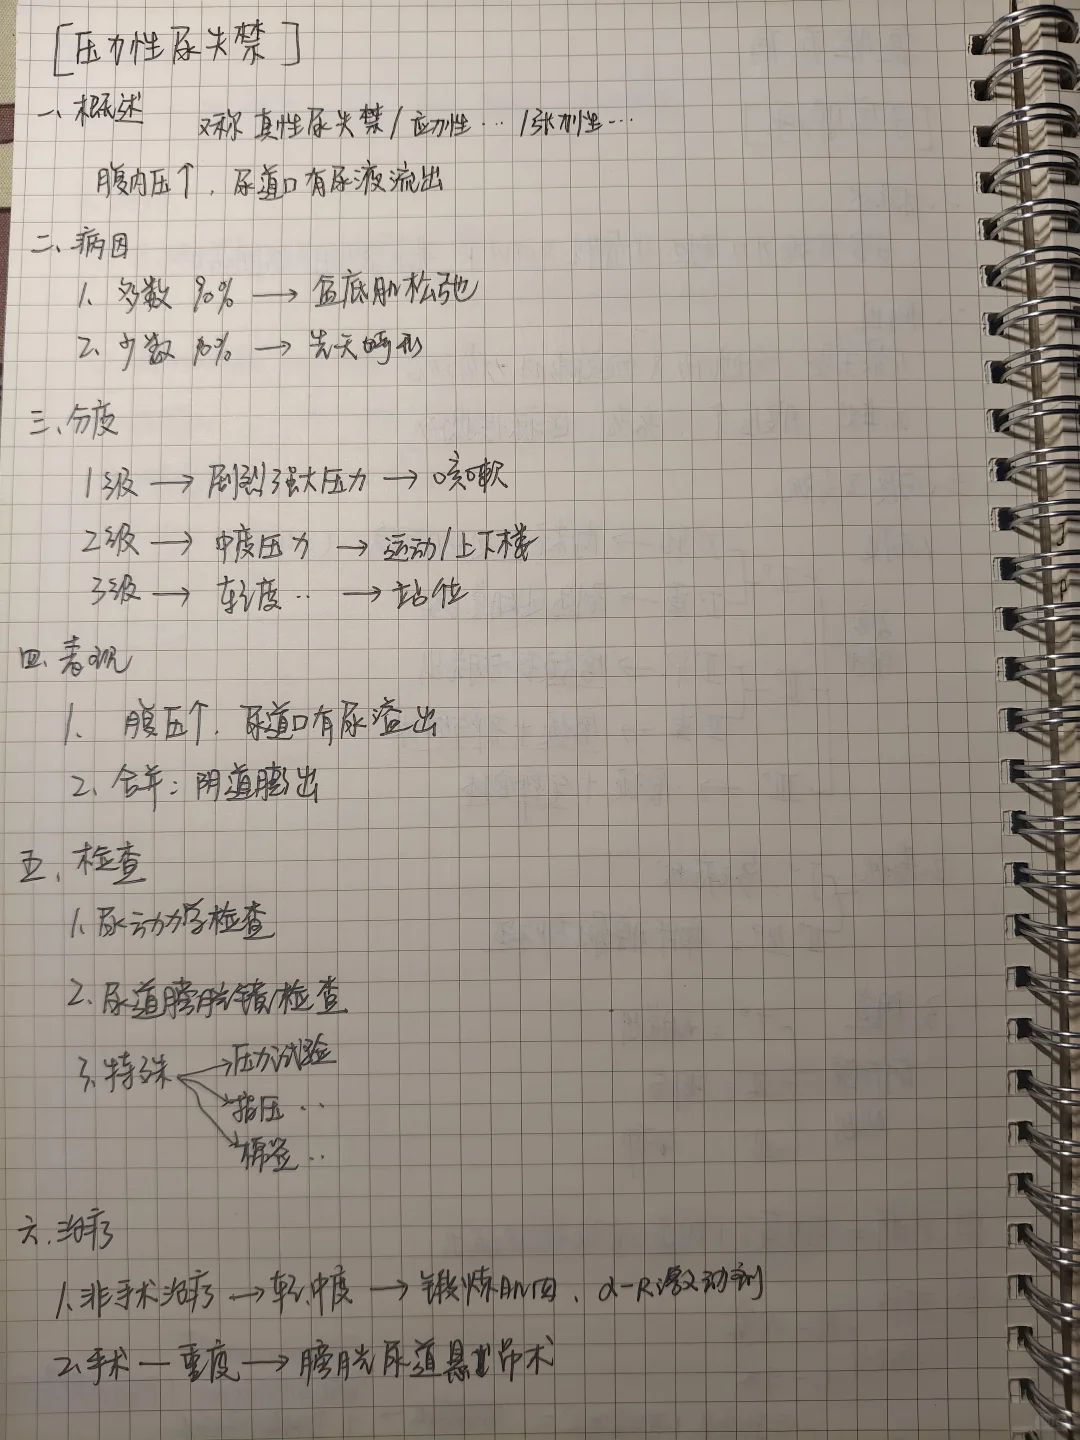 [压力性尿失禁]
一、概述 又称真性尿失禁/应力性…/张力性…
腹内压↑，尿道口有尿液流出
二、病因
1、多数 90% → 盆底肌松弛
2、少数 10% → 先天畸形
三、分度
1级 → 剧烈强大压力 → 咳嗽
2级 → 中度压力 → 运动/上下楼
3级 → 轻度‥ → 站位
四、表现
1、腹压↑，尿道口有尿溢出
2、合并：阴道膨出
五、检查
1、尿动力学检查
2、尿道膀胱镜检查
3、特殊 → 压力试验
→ 指压‥
→ 棉签‥
六、治疗
1、非手术治疗 → 轻、中度 → 锻炼肌肉、α-R激动剂
2、手术 — 重度 → 膀胱尿道悬吊术